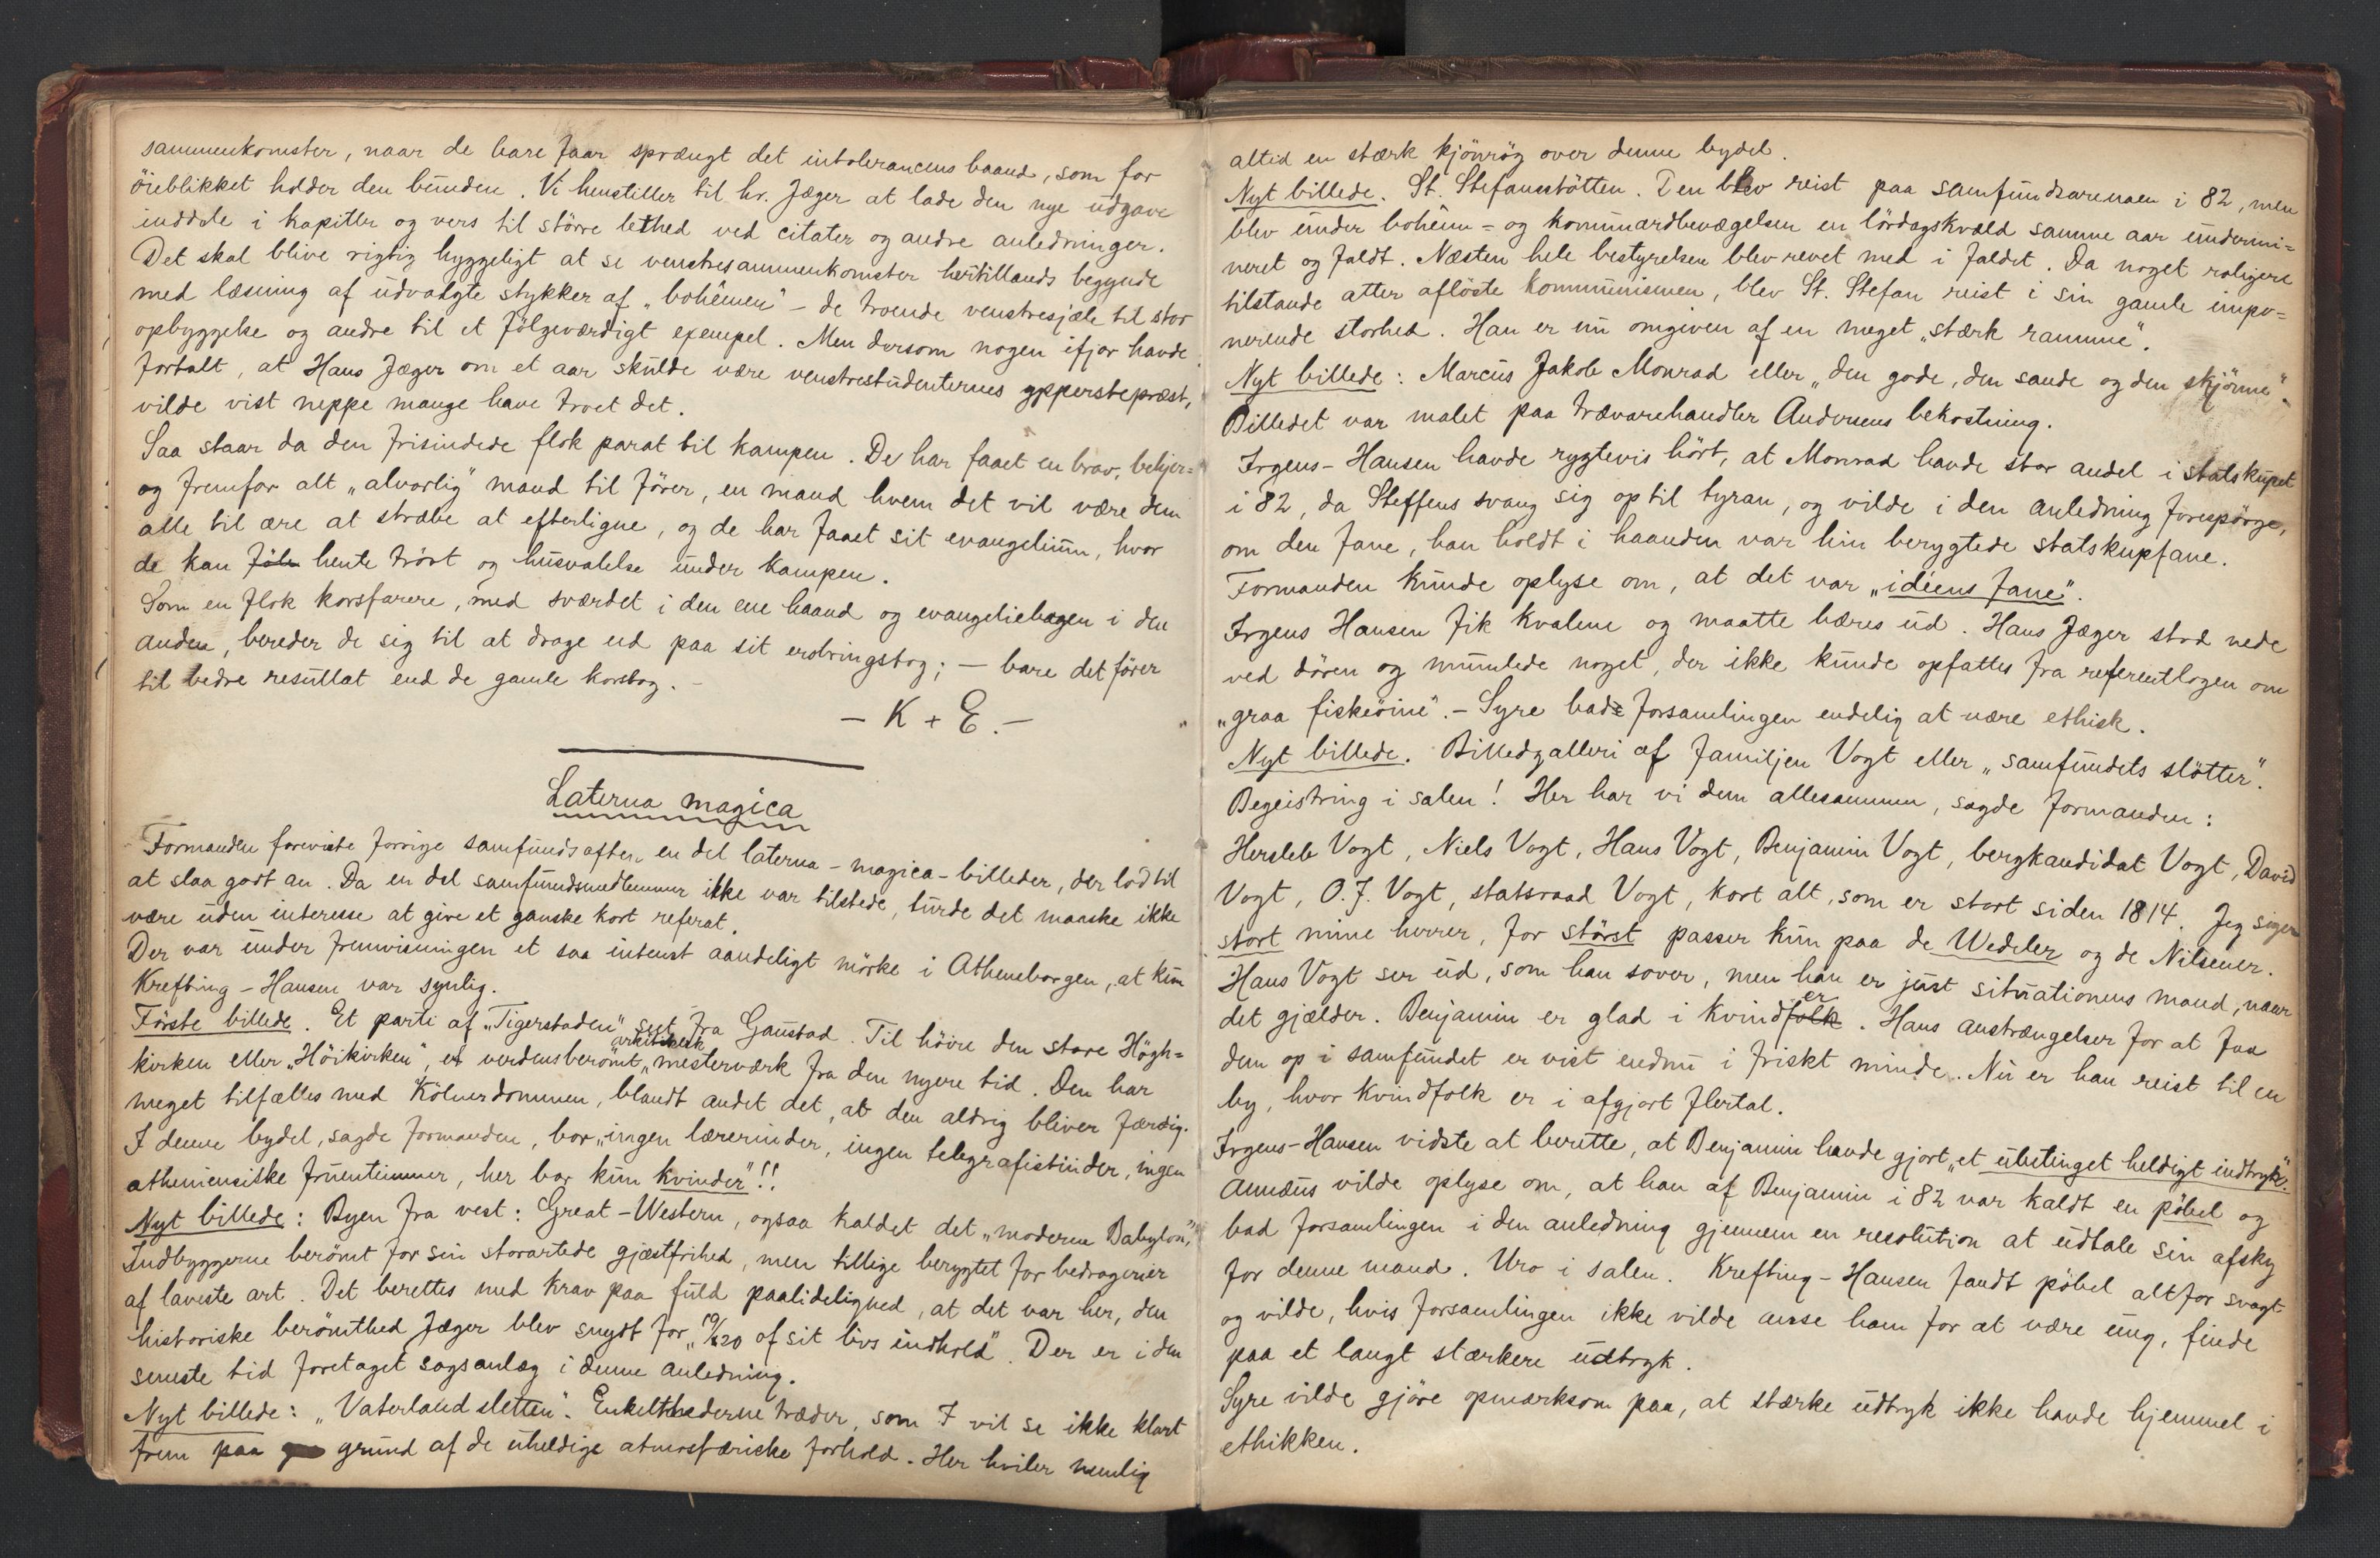 sammenkomster, naar de bare faar sprængt det intolerancens baand, som for
öieblikket holder den bunden. Vi henstiller til hr. Jæger at lade den nye udgave
inddele i kapitler og vers til större lethed ved citater og andre anledninger.
Det skal blive rigtig hyggeligt at se venstresammenkomster hertillands begynde
med læsning af udvalgte stykker af „bohêmen" – de troende venstresjæle til stor
opbyggelse og andre til et fölgeværdigt exempel. Men dersom nogen ifjor havde
fortalt, at Hans Jæger om et aar skulde være venstrestudenternes ypperstepræst,
vilde vist neppe mange have troet det.
Saa staar da den frisindede flok parat til kampen. De har faaet en brav, behjer=
og fremfor alt „alvorlig" mand til förer, en mand hvem det vil være dem
alle til ære at stræbe at efterligne, og de har faaet sit evangelium, hvor
de kan föle hente tröst og husvalelse under kampen.
Som en flok korsfarere, med sværdet i den ene haand og evangeliebogen i den
anden, bereder de sig til at drage ud paa sit erobringstog; – bare det förer
til bedre resultat end de gamle korstog. –
– K + E. –
Laterna magica
Formanden foreviste forrige samfundsaften en del laterna-magica-billeder, der lod til
at slaa godt an. Da en del samfundsmedlemmer ikke var tilstede, turde det maaske ikke
være uden interesse at give et ganske kort referat.
Der var under fremvisningen et saa intenst aandeligt mörke i Atheneborgen, at kun
Krefting-Hansen var synlig.
Förste billede. Et parti af „Tigerstaden" set fra Gaustad. Til höire den store Högh=
kirken eller „Höikirken", et verdensberömt „arkitektonisk mesterværk fra den nyere tid. Den har
meget tilfælles med Kölnerdommen, blandt andet det, at den aldrig bliver færdig.
I denne bydel, sagde formanden, bor „ingen lærerinder, ingen telegrafistinder, ingen
atheniensiske fruentimmer, her bor kun kvinder"!!
Nyt billede: Byen fra vest: Great-Western, ogsaa kaldet det „moderne Babylon",
Indbyggerne berömt for sin storartede gjæstfrihed, men tillige berygtet for bedragerier
af laveste art. Det berettes med krav paa fuld paalidelighed, at det var her, den
historiske berömthed Jæger blev snydt for „19/20 af sit livs indhold". Der er i den
seneste tid foretaget sagsanlæg i denne anledning.
Nyt billede: „Vaterlandsletten". Enkelthederne træder, som I vil se ikke klart
frem paa grund af de uheldige atmosfæriske forhold. Her hviler nemlig
altid en stærk kjönrög over denne bydel.
Nyt billede. St. Stefansstötten. Den blev reist paa samfundsarenaen i 82, men
blev under bohêm= og kommunardbevægelsen en lördagskvæld samme aar undermi=
neret og faldt. Næsten hele bestyrelsen blev revet med i faldet. Da noget roligere
tilstande atter aflöste kommunismen, blev St. Stefan reist i sin gamle impo=
nerende storhed. Han er nu omgiven af en meget „stærk ramme".
Nyt billede: Marcus Jakob Monrad eller „den gode, den sande og den skjönne".
Billedet var malet paa trævarehandler Andersens bekostning.
Irgens-Hansen havde rygtevis hört, at Monrad havde stor andel i statskupet
i 82, da Steffens svang sig op til tyran, og vilde i den anledning forespörge,
om den fane, han holdt i haanden var hin berygtede statskupfane.
Formanden kunde oplyse om, at det var „idéens fane".
Irgens Hansen fik kvalme og maatte bæres ud. Hans Jæger stod nede
ved dören og mumlede noget, der ikke kunde opfattes fra referentlogen om
„graa fiskeöine". – Syre bad forsamlingen endelig at være ethisk.
Nyt billede. Billedgalleri af familjen Vogt eller „samfundets stötter".
Begeistring i salen! Her har vi dem allesammen, sagde formanden:
Hersleb Vogt, Niels Vogt, Hans Vogt, Benjamin Vogt, bergkandidat Vogt, David
Vogt, O.J. Vogt, statsraad Vogt, kort alt, som er stort siden 1814. Jeg siger
stort mine herrer, for störst passer kun paa de Wedeler og de Nilsener.
Hans Vogt ser ud, som han sover, men han er just situationens mand, naar
det gjælder. Benjamin er glad i kvindfolk er. Hans anstrængelser for at faa
dem op i samfundet er vist endnu i friskt minde. Nu er han reist til en
by, hvor kvindfolk er i afgjort flertal.
Irgens-Hansen vidste at berette, at Benjamin havde gjort „et ubetinget heldigt indtryk".
Annæus vilde oplyse om, at han af Benjamin i 82 var kaldt en pöbel og
bad forsamlingen i den anledning gjennem en resolution at udtale sin afsky
for denne mand. Uro i salen. Krefting-Hansen fandt pöbel altfor svagt
og vilde, hvis forsamlingen ikke vilde ansse ham for at være ung, finde
paa et langt stærkere udtryk.
Syre vilde gjöre opmærksom paa, at stærke udtryk ikke havde hjemmel i
ethikken.